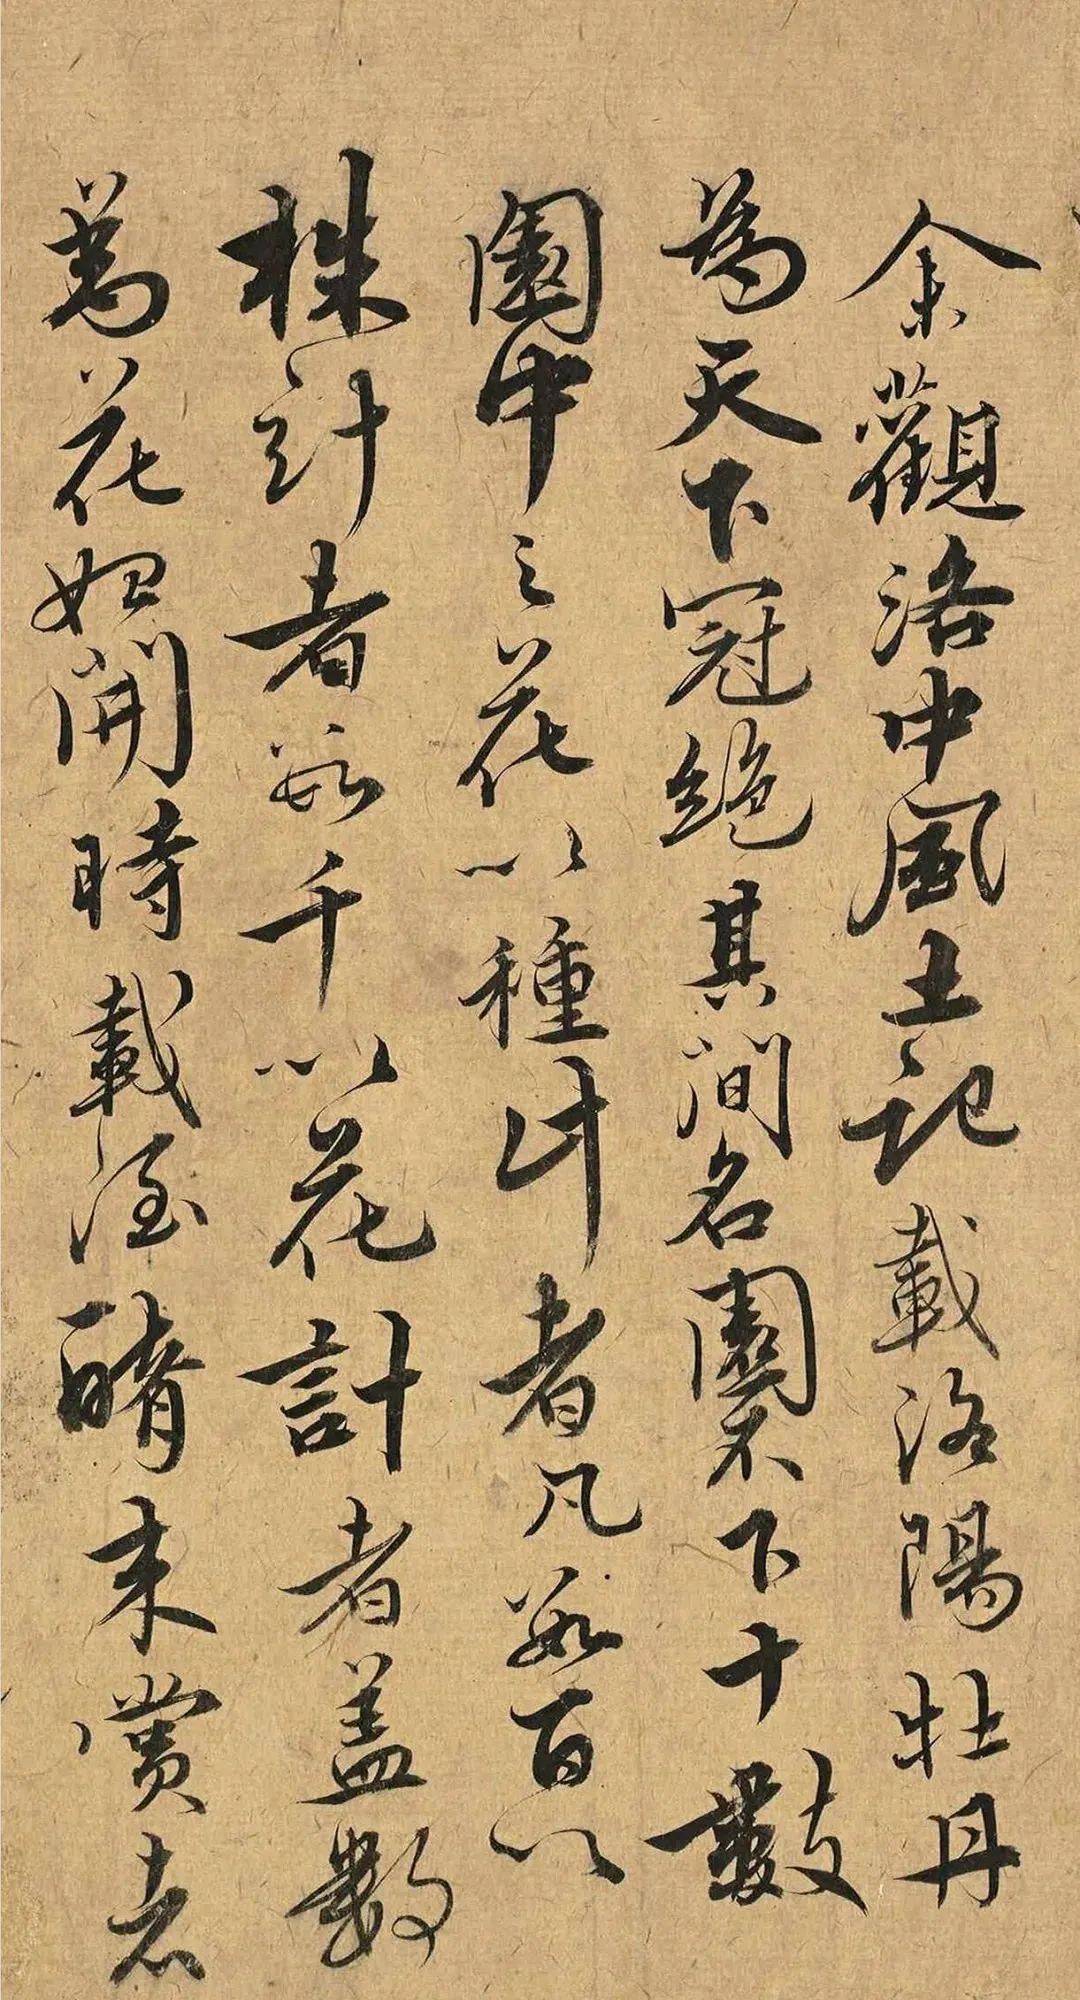 余觀洛中風土記載洛陽牡丹
為天下冠絕其間名園不下十數
園中之花以種計者凡數百以
株計者數千以花計者蓋數
萬花始開時載酒來賞者